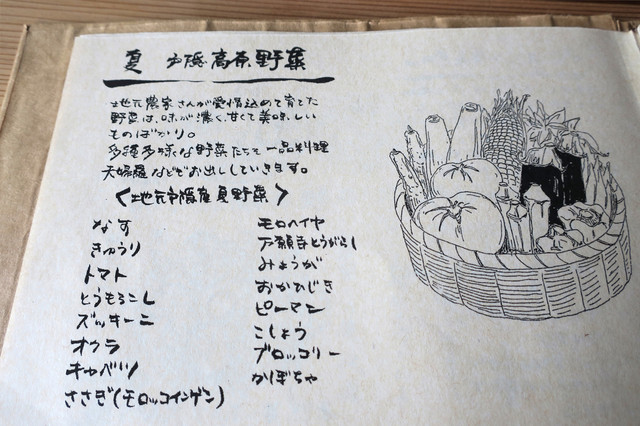 夏 戸隠高原野菜
地元農家さんが愛情込めて育てた
野菜は、味が濃く、甘くて美味しい
ものばかり。
多種多様な野菜たちを一品料理
天婦羅などでお出ししていきます。
〈地元戸隠産夏野菜〉
なす
きゅうり
トマト
とうもろこし
ズッキーニ
オクラ
キャベツ
ささぎ(モロッコインゲン)
モロヘイヤ
万願寺とうがらし
みょうが
おかひじき
ピーマン
こしょう
ブロッコリー
かぼちゃ